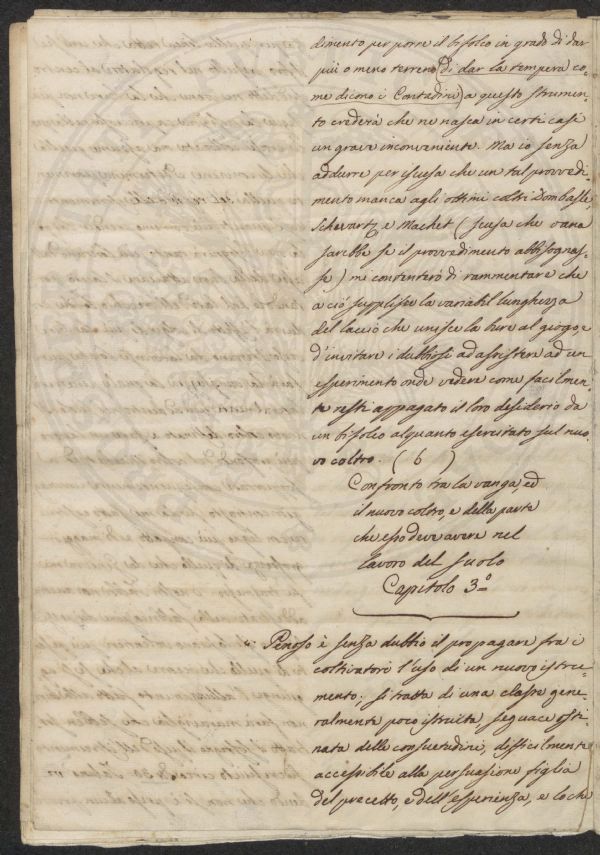 dimento per porre il bifolco in grado di dar
più o meno terreno (di dar la tempera co=
me dicono i Contadini) a questo strumen=
to crederà che ne nasca in certi casi
un grave inconveniente. Ma io senza
addurre per iscusa che un tal provvedi=
mento manca agli ottimi coltri Dombasle
Schwartz, e Machet (scusa che vana
sarebbe se il provvedimento abbisognas=
se) mi contenterò di rammentare che
a ciò supplisce la variabil lunghezza
del laccio che unisce la bure al giogo, e
d'invitare i dubbiosi ad assistere ad un
esperimento onde vedere come facilmen=
te resti appagato il loro desiderio da
un bifolco alquanto esercitato sul nuo=
vo coltro. (6)
Confronto tra la vanga, ed
il nuovo coltro, e della parte
che esso deve avere nel
lavoro del suolo
Capitolo 3.º
Penoso è senza dubbio il propagare fra i
coltivatori l'uso di un nuovo istru=
mento; si tratta di una classe gene=
ralmente poco istruita, seguace osti=
nata delle consuetudini, difficilmente
accessibile alla persuasione figlia
del precetto, e dell'esperienza, e lo che